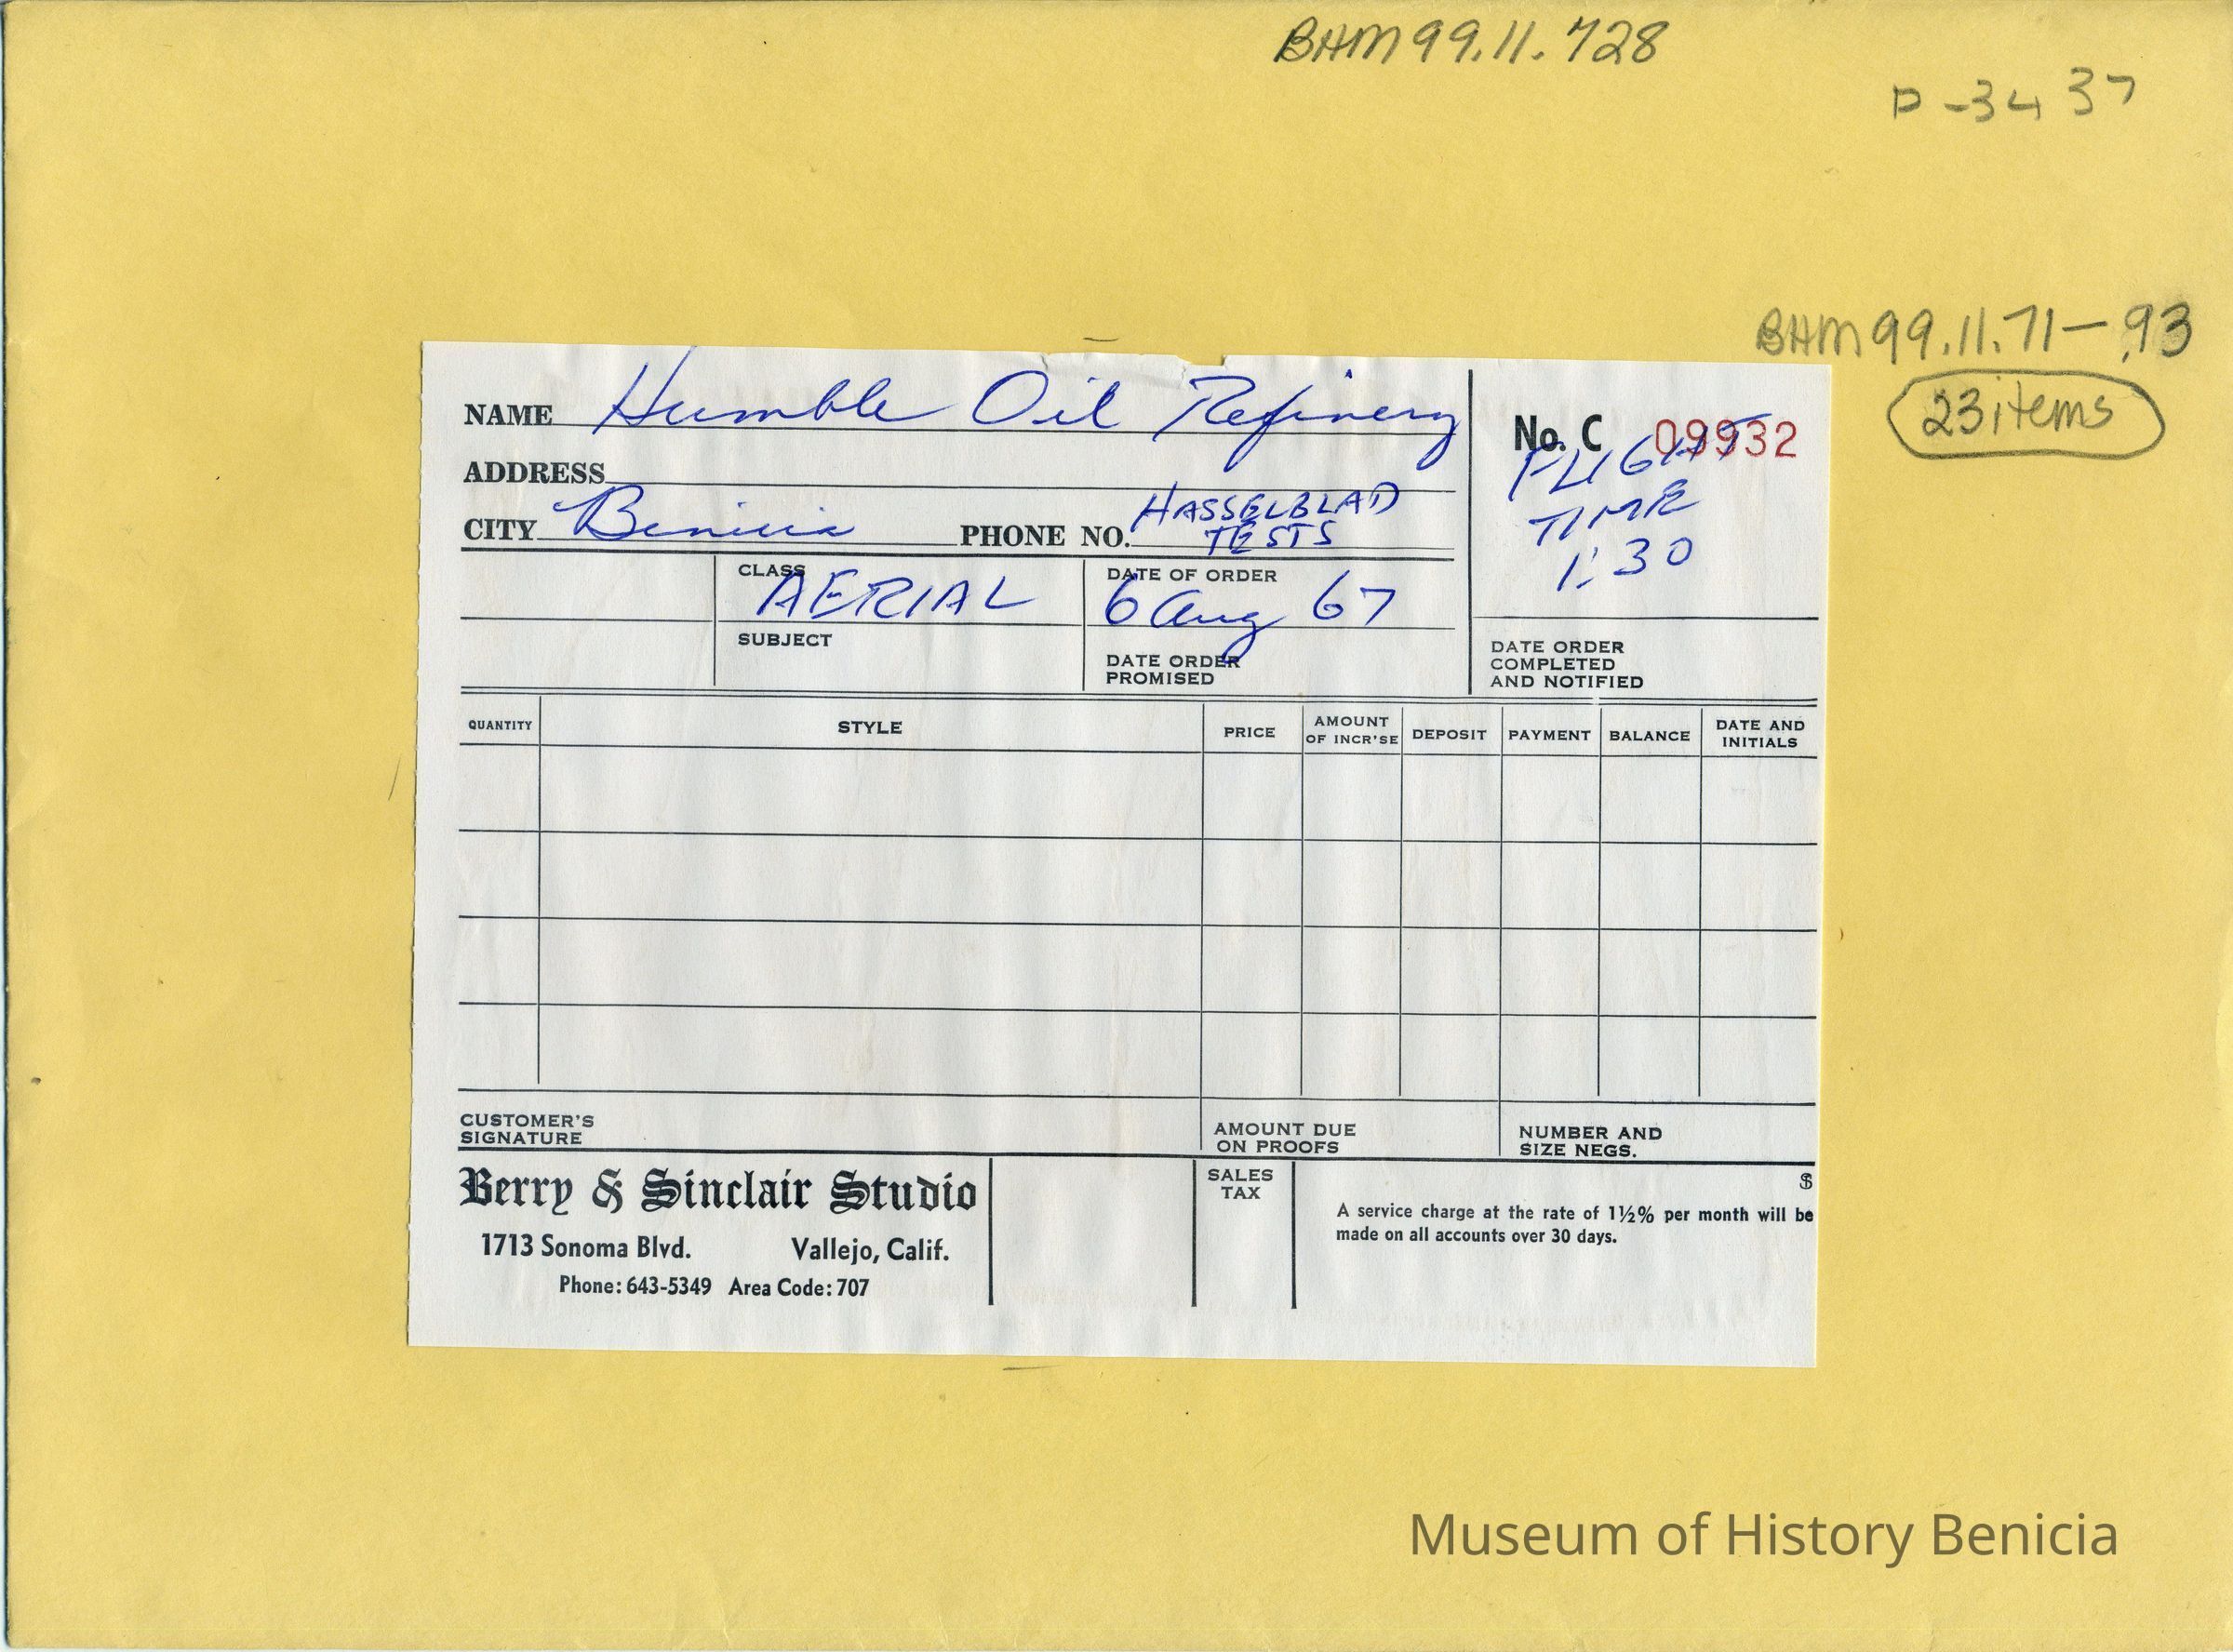 BHM 99.11.728
P-3437
BHM 99.11.71-.93
23 items
NAME Humble Oil Refinery
No. C 09932
FLIGHT
TIME
1:30
ADDRESS
HASSELBLAD
CITY Benicia PHONE NO. TESTS
CLASS AERIAL
DATE OF ORDER
6 Aug 67
SUBJECT
DATE ORDER
PROMISED
DATE ORDER
COMPLETED
AND NOTIFIED
QUANTITY STYLE PRICE AMOUNT OF INCR'SE DEPOSIT PAYMENT BALANCE DATE AND INITIALS
CUSTOMER'S
SIGNATURE
AMOUNT DUE
ON PROOFS
NUMBER AND
SIZE NEGS.
Berry & Sinclair Studio
1713 Sonoma Blvd. Vallejo, Calif.
Phone: 643-5349 Area Code: 707
SALES
TAX
$
A service charge at the rate of 1½% per month will be
made on all accounts over 30 days.
Museum of History Benicia